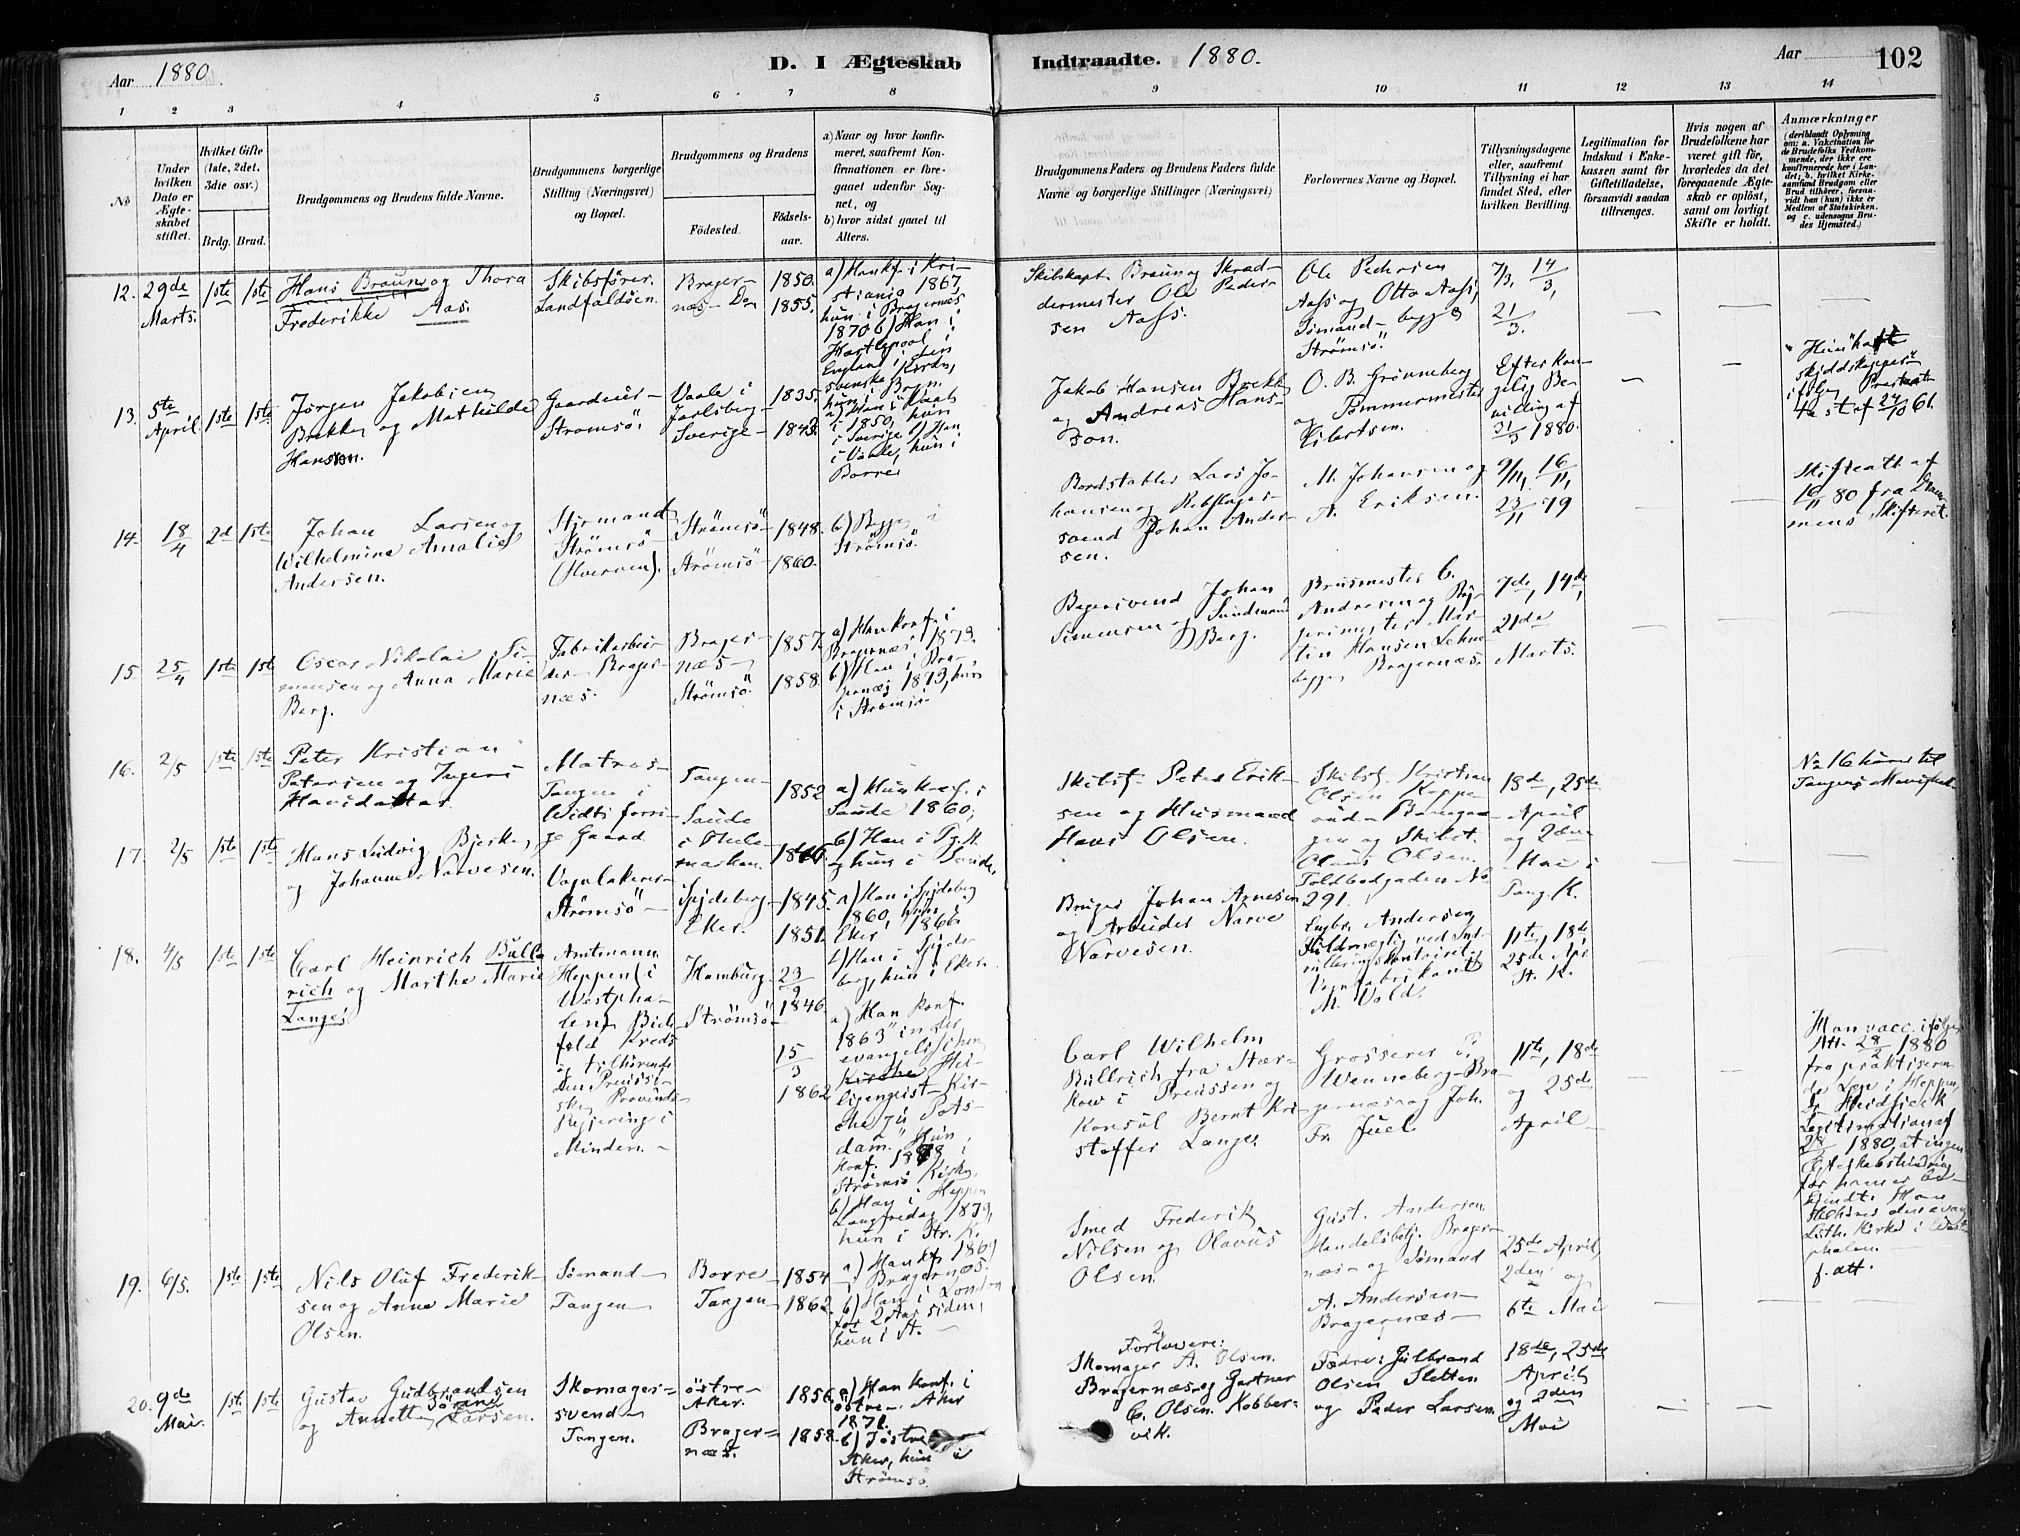 Aar 1880.
D. I Ægteskab
Indtraadte. 1880.
Aar
102
1 2 3 4 5 6 7 8 9 10 11 12 13 14
No
Under hvilken Dato er Ægteskabet stiftet.
Hvilket Gifte (1ste, 2det, 3die osv.)
Brdg. Brud.
Brudgommens og Brudens fulde Navne.
Brudgommens borgerlige Stilling (Næringsvei) og Bopæl.
Brudgommens og Brudens
Födested.
Födselsaar.
a) Naar og hvor konfirmeret, saafremt Konfirmationen er foregaaet udenfor Sognet, og
b) hvor sidst gaaet til Alters.
Brudgommens Faders og Brudens Faders fulde Navne og borgerlige Stillinger (Næringsvei)
Forlovernes Navne og Bopæl.
Tillysningsdagene eller, saafremt Tillysning ei har fundet Sted, efter hvilken Bevilling.
Legitimation for Indskud i Enkekassen samt for Giftetilladelse, forsaavidt saadan tiltrænges.
Hvis nogen af Brudefolkene har været gift för, hvorledes da det foregaaende Ægteskab er oplöst, samt om lovligt Skifte er holdt.
Anmærkninger
(deriblandt Oplysning om: a. Vakcination for de Brudefolks Vedkommende, der ikke ere konfirmerede her i Landet; b. hvilket Kirkesamfund Brudgom eller Brud tilhörer, forsaavidt han (hun) ikke er Medlem af Statskirken, og c. udensogns Brudes Hjemsted.)
12. 29de Marts. 1ste 1ste
Hans Braun og Thora
Frederikke Aas.
Skibsförer.
Landfaldöen.
Bragernæs - Do
1850.
1855.
a) Han kf. i Kristiania 1867,
hun i Bragernæs
1870 b) Han i
Hartlepool
England i den
svenske Kirke,
hun i Brgn.
Skibskapt. Braun og Skræddermester Ole Pedersen Aass.
Ole Pedersen
Aass og Otto Aass,
Sömand - begge
Strömsö.
7/3, 14/3,
21/3.
13. 5te April. 1ste 1ste
Jörgen Jakobsen
Brekke og Mathilde
Hansson.
Gaardeier
Strömsö.
Vaale i
Jarlsberg -
Sverige -
1835.
1843.
a) Han i Vaale
i 1850, hun
i Sverige b) Han
i Vaale, hun i
Borre
Jakob Hansen Brekke
og Andreas Hansson.
O. B. Grönneberg
Tömmermester
og
Eilertsen.
Efter kongelig Bevilling af
31/3 1880.
Hun haft
skjödskopper
ifölge Præsteattest af 24/10 61.
14. 18/4 2d 1ste
Johan Larsen og
Wilhelmine Amalie
Andersen.
Styrmand
Strömsö -
(Hverven).
Strömsö -
Strömsö
1848.
1860.
b) Begge i
Strömsö.
Bordstabler Lars Johansen og Rebslagersvend Johan Andersen.
M. Johansen og
A. Eriksen.
9/11, 16/11,
23/11 79
Skifteatt af
10/11 80 fra Drammens Skifteret.
15. 25/4 1ste 1st
Oscar Nikolai Simensen og Anna Marie
Berg.
Fabrikarbeider - Bragernæs.
Bragernæs -
Strömsö.
1857.
1858.
a) Han konf. i
Bragernæs 1873.
b) Han i Bragernæs 1879, hun
i Strömsö
Bagersvend Johan
Simensen og Sundmand
Berg.
Brusmester C.
Andresen og Bagermester Martin Hansen Lehne
begge Bragernæs.
7de, 14de,
21de
Marts.
16. 2/5 1ste 1ste
Peter Kristian
Petersen og Ingeri
Hansdatter.
Matros -
Tangen i
Widts forrige Gaard
Tangen -
Saude
i Thelemarken.
1852
1846
a) Hun konf. i
Saude 1860;
b) Han i Tg. K.
og hun i Saude.
Skibsf. Peter Eriksen og Husmand
Hans Olsen.
Skibsf. Kristian
Olsen
Olaus Olsen.
Toldbodgaden No
291.
18de, 25de
April
og 2den
Mai i
Tang. K.
No 16 hörer til
Tangens Menighed.
17. 2/5 1ste 1ste
Hans Ludvig Bjerke,
og Johanne Narvesen.
Vognlakerer
Strömsö -
Spydeberg -
Eker.
1845.
1851.
a) Han i Spydeberg
1860, hun i
Eker 1866
b) Han i Spydeberg, hun i Eker.
Bruger Johan Arnesen
og Arbeider Narve
Narvesen.
Engbr. Andersen,
Fuldmægtig ved Indrulleringskontoiret og
Vognfabrikant
M. Vold.
11te, 18de
25de Apr.
St. K.
18. 4/5 1ste 1ste
Carl Heinrich Bullrich og Marthe Marie
Lange
Amtmann
Heppen i
Westphalen, Bielefeld Kreds
og tilhörende
den Preussiske Provinds
Regjering i
Minden. -
Hamburg -
Strömsö -
23/9
1846
15/3
1862
a) Han konf.
1863 "in der
evangelischen
Kirche Heiligengeist - Kirche zu Potsdam." Hun
konf. 1878 i
Strömsö Kirke,
b) Han i Heppen
Langfredag 1879,
hun i Str. K.
Carl Wilhelm
Bullrich fra Storkow i Preussen og
Konsul Bernt Kristoffer Lange.
Grosserer P.
Wenneberg - Bragernæs og Joh.
Fr. Juel.
11te, 18de
og 25de
April -
Han vacc. ifölge
Att. 28/2 1880
fra praktiserende Læge i Heppen
Dr Heidsieck
Legitimation af
28/2 1880, at ingen
Ægteskabshindring
for hans bekjendt. Han
tilhörer den evang.
luth. Kirke i Westphalen -
f. att.
19. 6/5. 1ste 1ste
Nils Oluf Frederiksen og Anne Marie
Olsen.
Sömand -
Tangen -
Borre
Tangen
1854
1862.
a) Han kf. 1869
i Bragernæs.
b) Han i London
for 2 Aar siden,
hun i St. -
Smed Frederik
Nilsen og Olavus
Olsen.
Gust. Andersen
Handelsbetj. Bragernæs - og Sömand
A. Andersen -
Bragernæs -
25de April,
2den og
6te Mai
20. 9de Mai. 1ste 1ste
Gustav Gudbrandsen
og Annette Sörine Larsen.
Skomagersvend -
Tangen.
östre -
Aker.
Bragernæs.
1856.
1858.
a) Han konf. i
östre - Aker
1871.
b) I östre
Aker, hun i
Strömsö.
2
Forlovere:
Skomager A. Olsen.
Bragernæs og Gartner
C. Olsen. Kobbervik.
Fædre: Gulbrand
Olsen Sletten
og Peder Larsen.
18de, 25de
April
og 2den
Mai